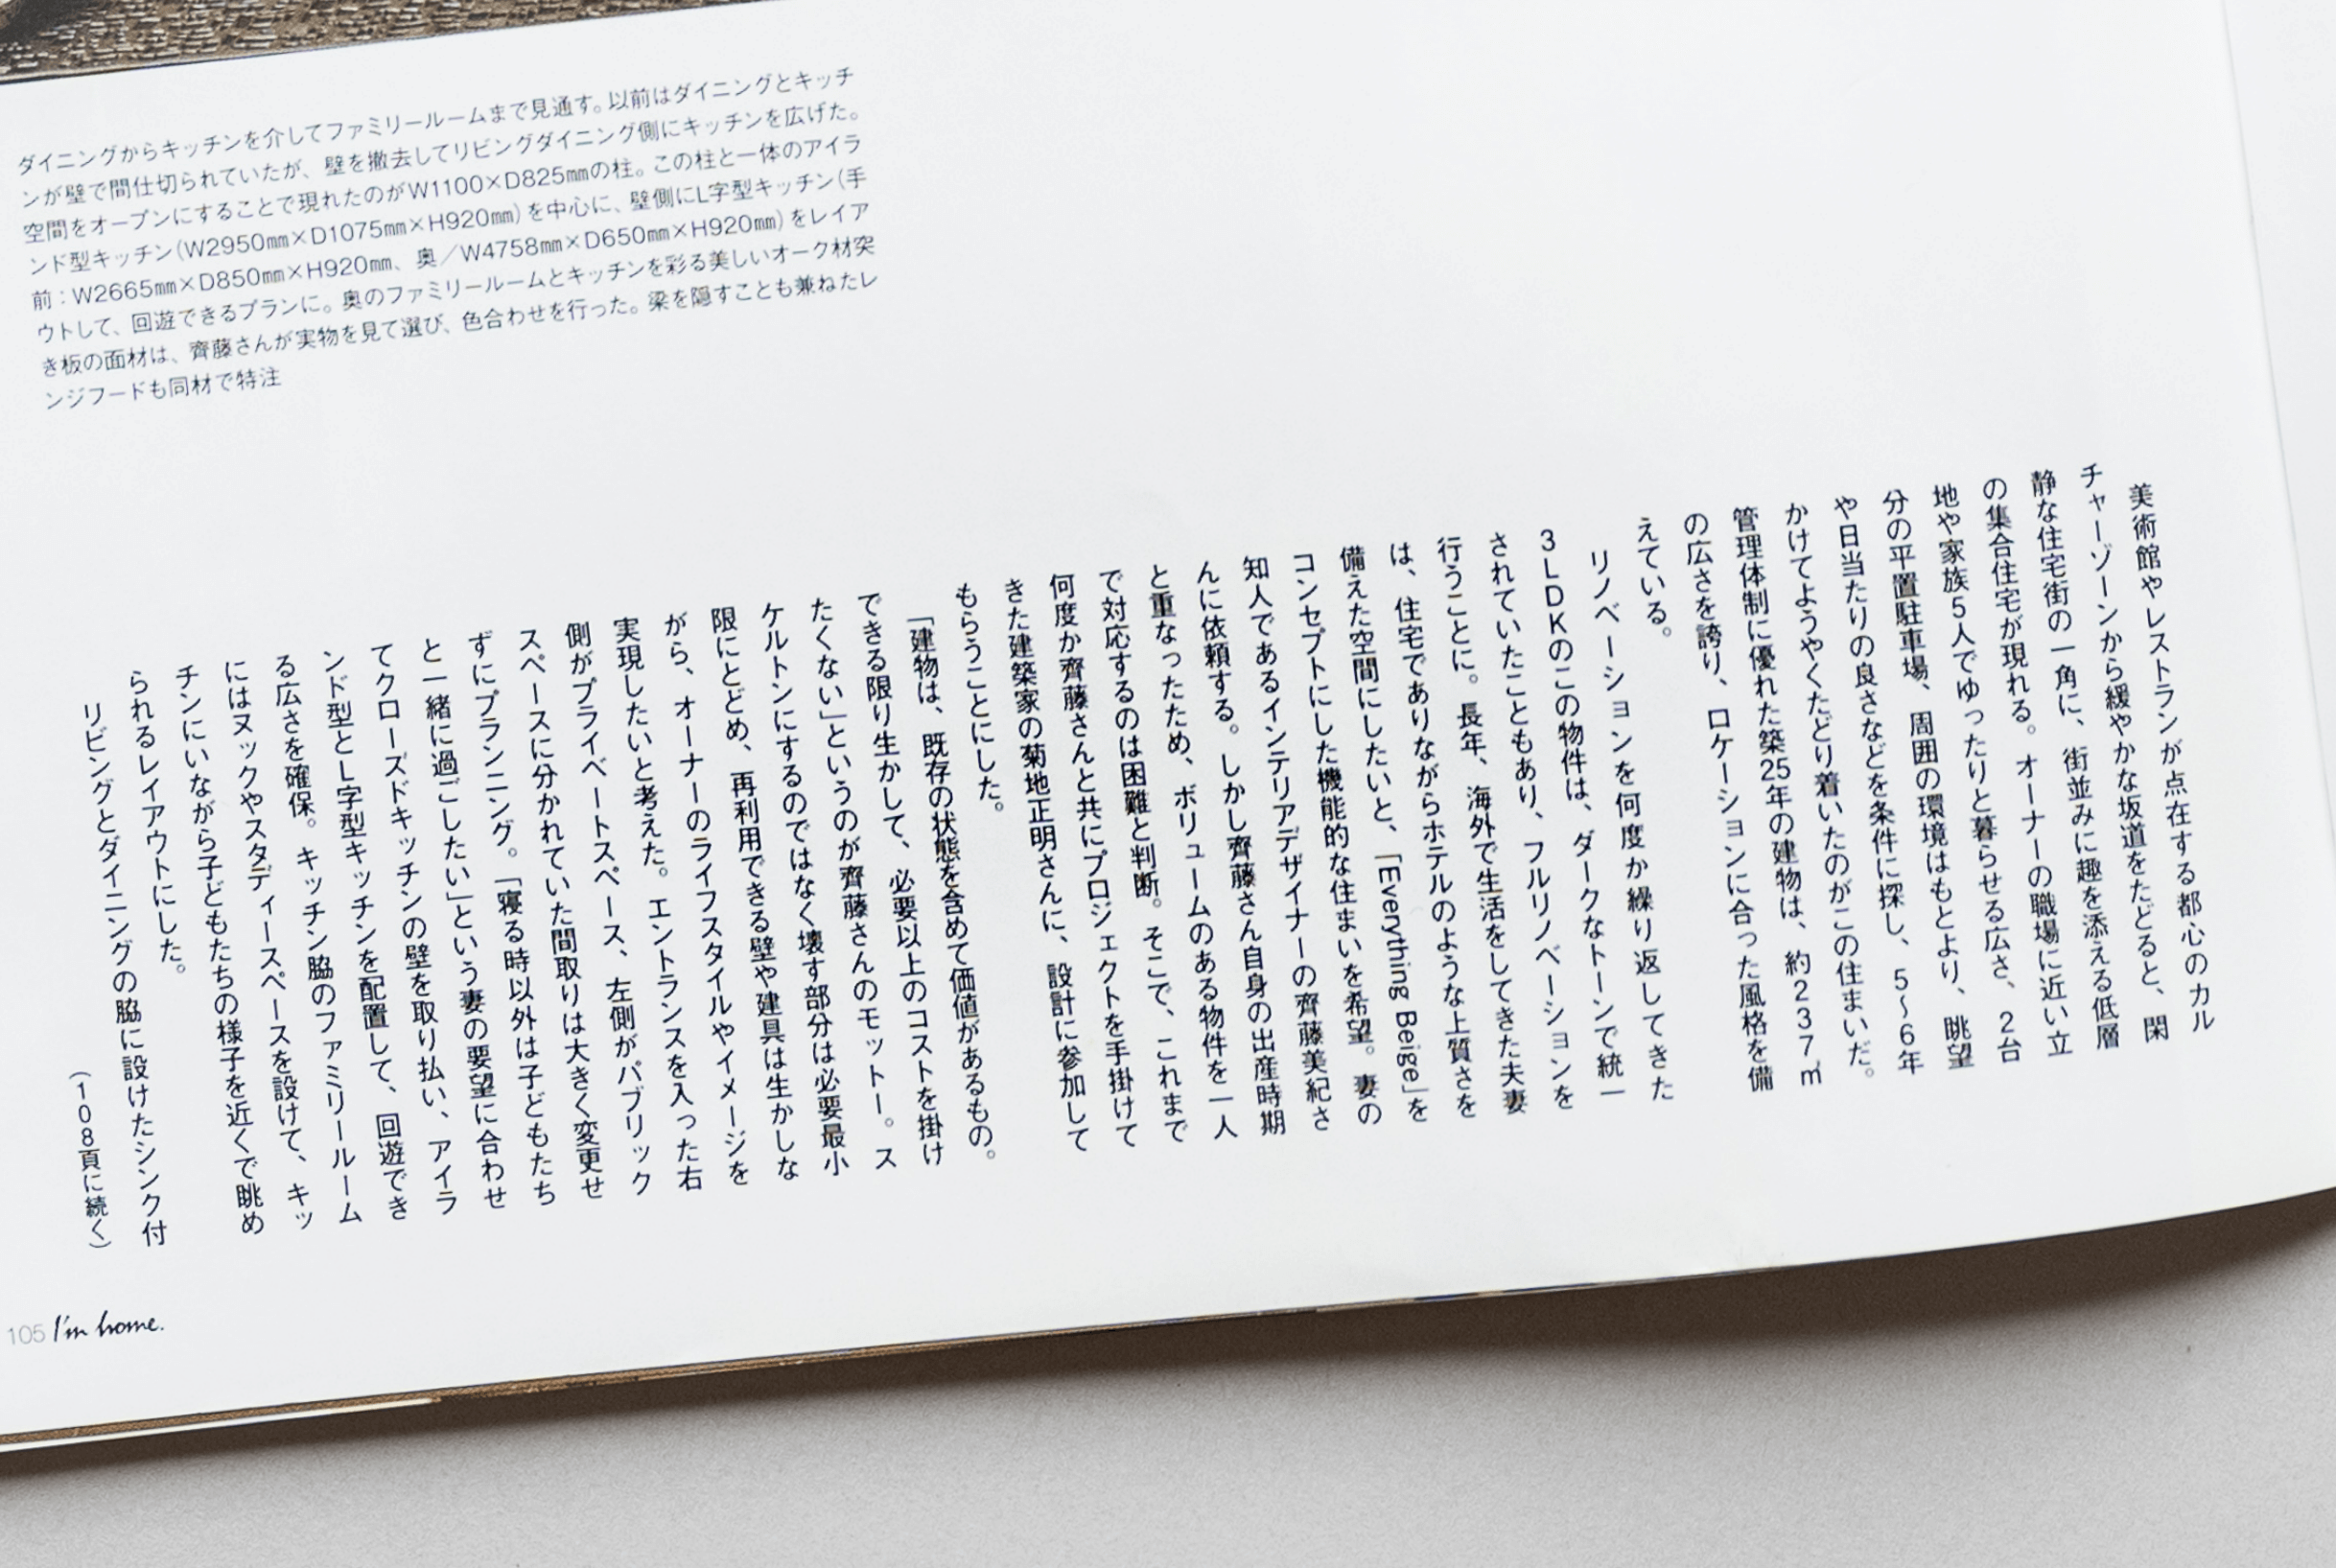 ダイニングからキッチンを介してファミリールームまで見通す。以前はダイニングとキッチ
ンが壁で間仕切られていたが、壁を撤去してリビングダイニング側にキッチンを広げた。
空間をオープンにすることで現れたのがW1100×D825㎜の柱。この柱と一体のアイラ
ンド型キッチン(W2950㎜×D1075㎜×H920㎜)を中心に、壁側にL字型キッチン(手
前：W2665㎜×D850㎜×H920㎜、奥／W4758㎜×D650㎜×H920㎜)をレイア
ウトして、回遊できるプランに。奥のファミリールームとキッチンを彩る美しいオーク材突
き板の面材は、齊藤さんが実物を見て選び、色合わせを行った。梁を隠すことも兼ねたレ
ンジフードも同材で特注
美術館やレストランが点在する都心のカル
チャーゾーンから緩やかな坂道をたどると、閑
静な住宅街の一角に、街並みに趣を添える低層
の集合住宅が現れる。オーナーの職場に近い立
地や家族5人でゆったりと暮らせる広さ、2台
分の平置駐車場、周囲の環境はもとより、眺望
や日当たりの良さなどを条件に探し、5〜6年
かけてようやくたどり着いたのがこの住まいだ。
管理体制に優れた築25年の建物は、約237㎡
の広さを誇り、ロケーションに合った風格を備
えている。
リノベーションを何度か繰り返してきた
3LDKのこの物件は、ダークなトーンで統一
されていたこともあり、フルリノベーションを
行うことに。長年、海外で生活をしてきた夫妻
は、住宅でありながらホテルのような上質さを
備えた空間にしたいと、「Everything Beige」を
コンセプトにした機能的な住まいを希望。妻の
知人であるインテリアデザイナーの齊藤美紀さ
んに依頼する。しかし齊藤さん自身の出産時期
と重なったため、ボリュームのある物件を一人
で対応するのは困難と判断。そこで、これまで
何度か齊藤さんと共にプロジェクトを手掛けて
きた建築家の菊地正明さんに、設計に参加して
もらうことにした。
「建物は、既存の状態を含めて価値があるもの。
できる限り生かして、必要以上のコストを掛け
たくない」というのが齊藤さんのモットー。ス
ケルトンにするのではなく壊す部分は必要最小
限にとどめ、再利用できる壁や建具は生かしな
がら、オーナーのライフスタイルやイメージを
実現したいと考えた。エントランスを入った右
側がプライベートスペース、左側がパブリック
スペースに分かれていた間取りは大きく変更せ
ずにプランニング。「寝る時以外は子どもたち
と一緒に過ごしたい」という妻の要望に合わせ
てクローズドキッチンの壁を取り払い、アイラ
ンド型とL字型キッチンを配置して、回遊でき
る広さを確保。キッチン脇のファミリールーム
にはヌックやスタディースペースを設けて、キッ
チンにいながら子どもたちの様子を近くで眺め
られるレイアウトにした。
リビングとダイニングの脇に設けたシンク付
(108頁に続く)
105 I'm home.